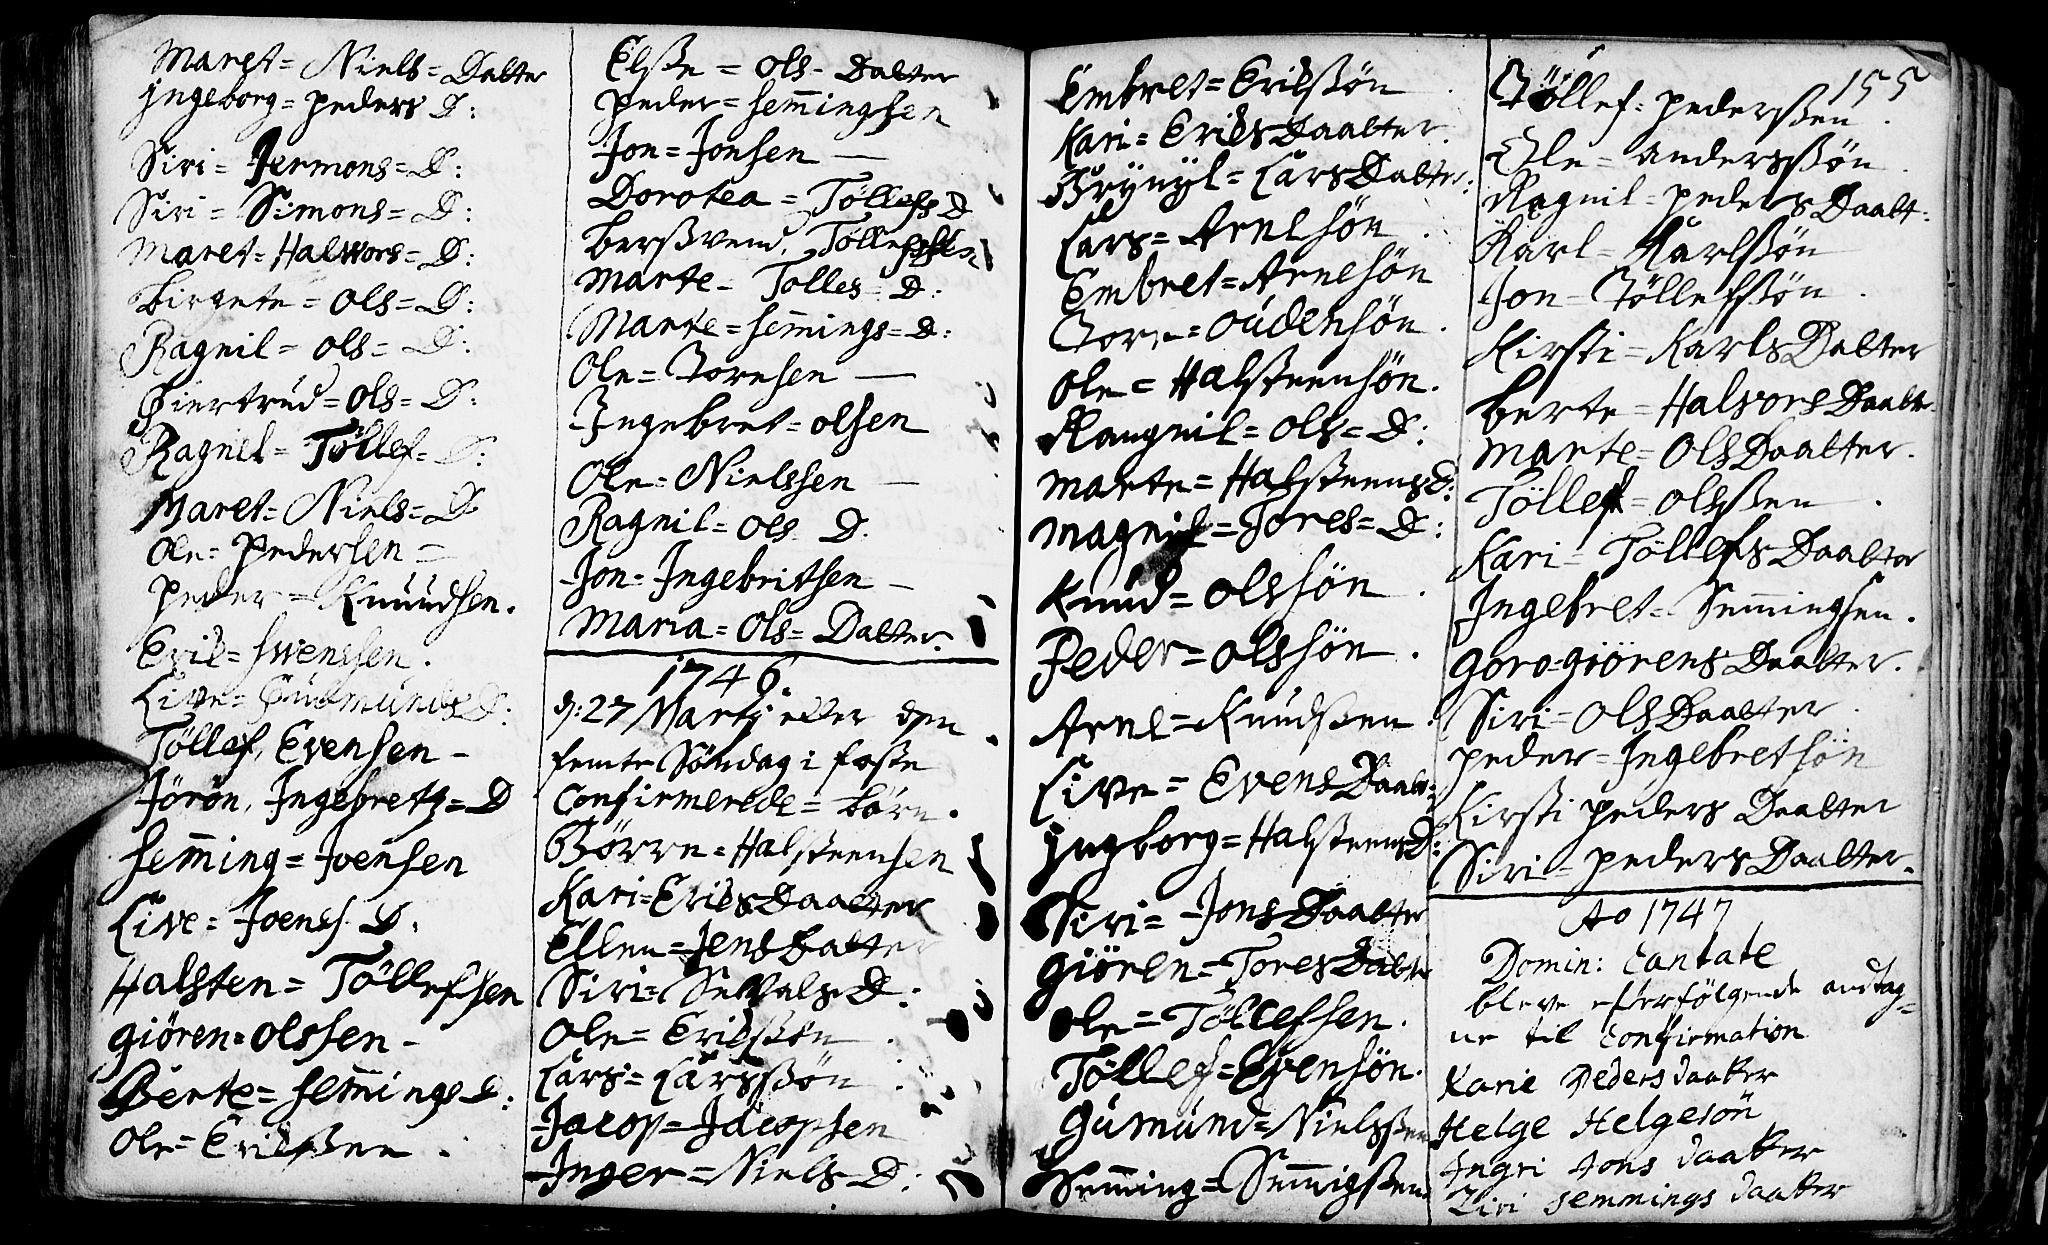 Maret = Niels = Datter
Jngeborg = Peders D:
Siri = Jermons = D:
Siri = Simons = D:
Maret = Halwors = D:
Birgete = Ols = D:
Ragnil = Ols = D:
Giertrud = Ols = D:
Ragnil = Töllef = D:
Maret = Niels = D
Ole = Pedersen =
Peder = Knuudsen.
Eril = Svensen.
Live = Gudmunds D:
Töllef, Evensen -
Jörön, Ingebretz = D
Hemming = Joensen
Live = Joens D:
Halsten = Töllefsen
Giören = Olssen -
Berte = Hemings D:
Ole = Erikssen.
Elsse = Ols - Datter
Peder = Hemingsen
Jon = Jonsen —
Dorotea = Töllefs D
Berssvend, Töllefssen
Marte - Tolles = D:
Marte = Hemings = D:
Ole = Toresen —
Ingebret = Olsen
Ole = Nielssen —
Ragnil = Ols D.
Jon = Ingebritsen —
Maria = Ols = Datter.
1746.
d: 27 Martj eller den
femte Söndag i faste
Confirmerede = börn.
Börre = Halsteensen
Kari = Eriks Daatter
Ellen = Jens Datter
Siri = Sevals D:
Ole = Erikssøn
Lars = Larsssøn
Jacop = Jacopsen
Inger = Niels D:
Embret = Erikssøn
Kari = Eriks Daatter
Brynyl = Lars Datter:
Lars = Arnesøn
Embret = Arnesøn
Tore = Oudensøn
Ole = Halsteensøn.
Raugnil = Ols = D:
Marte = Halsteens D:
Magnil = Tores = D:
Knud = Olssøn
Peder = Olssøn
Arne = Knudssen
Live = Evens Daatt:
Jngborg = Halsteens D:
Siri = Jons Daatter
Giören = Tores Datter
Ole = Töllefsen.
Töllef = Evensøn.
Gumund = Nielssen
Hemming = Hemmigssen
155
Töllef = Pederssen
Ole = Andersssøn
Ragnil = Peders Daatt:
Karl = Karlssøn
Jon = Töllefssøn
Kirsti = Karls Datter
Berte = Halvors Daatt.
Marte = Ols Daatter.
Töllef = Olsssen
Kari = Töllefs Daatter
Ingebret = Hemmingsen.
Goro = Giörens Daatter.
Siri = Ols Daatter
Peder = Ingebretsøn
Kirsti Peders Daatter
Siri = Peders Daatter.
Ao 1747
Domin: Cantate
bleve efterfölgende andtag=
ne til Confirmation
Karie Peders daatter
Helge Helgesøn
Ingri Jons daatter
Siri Hemmings daatter